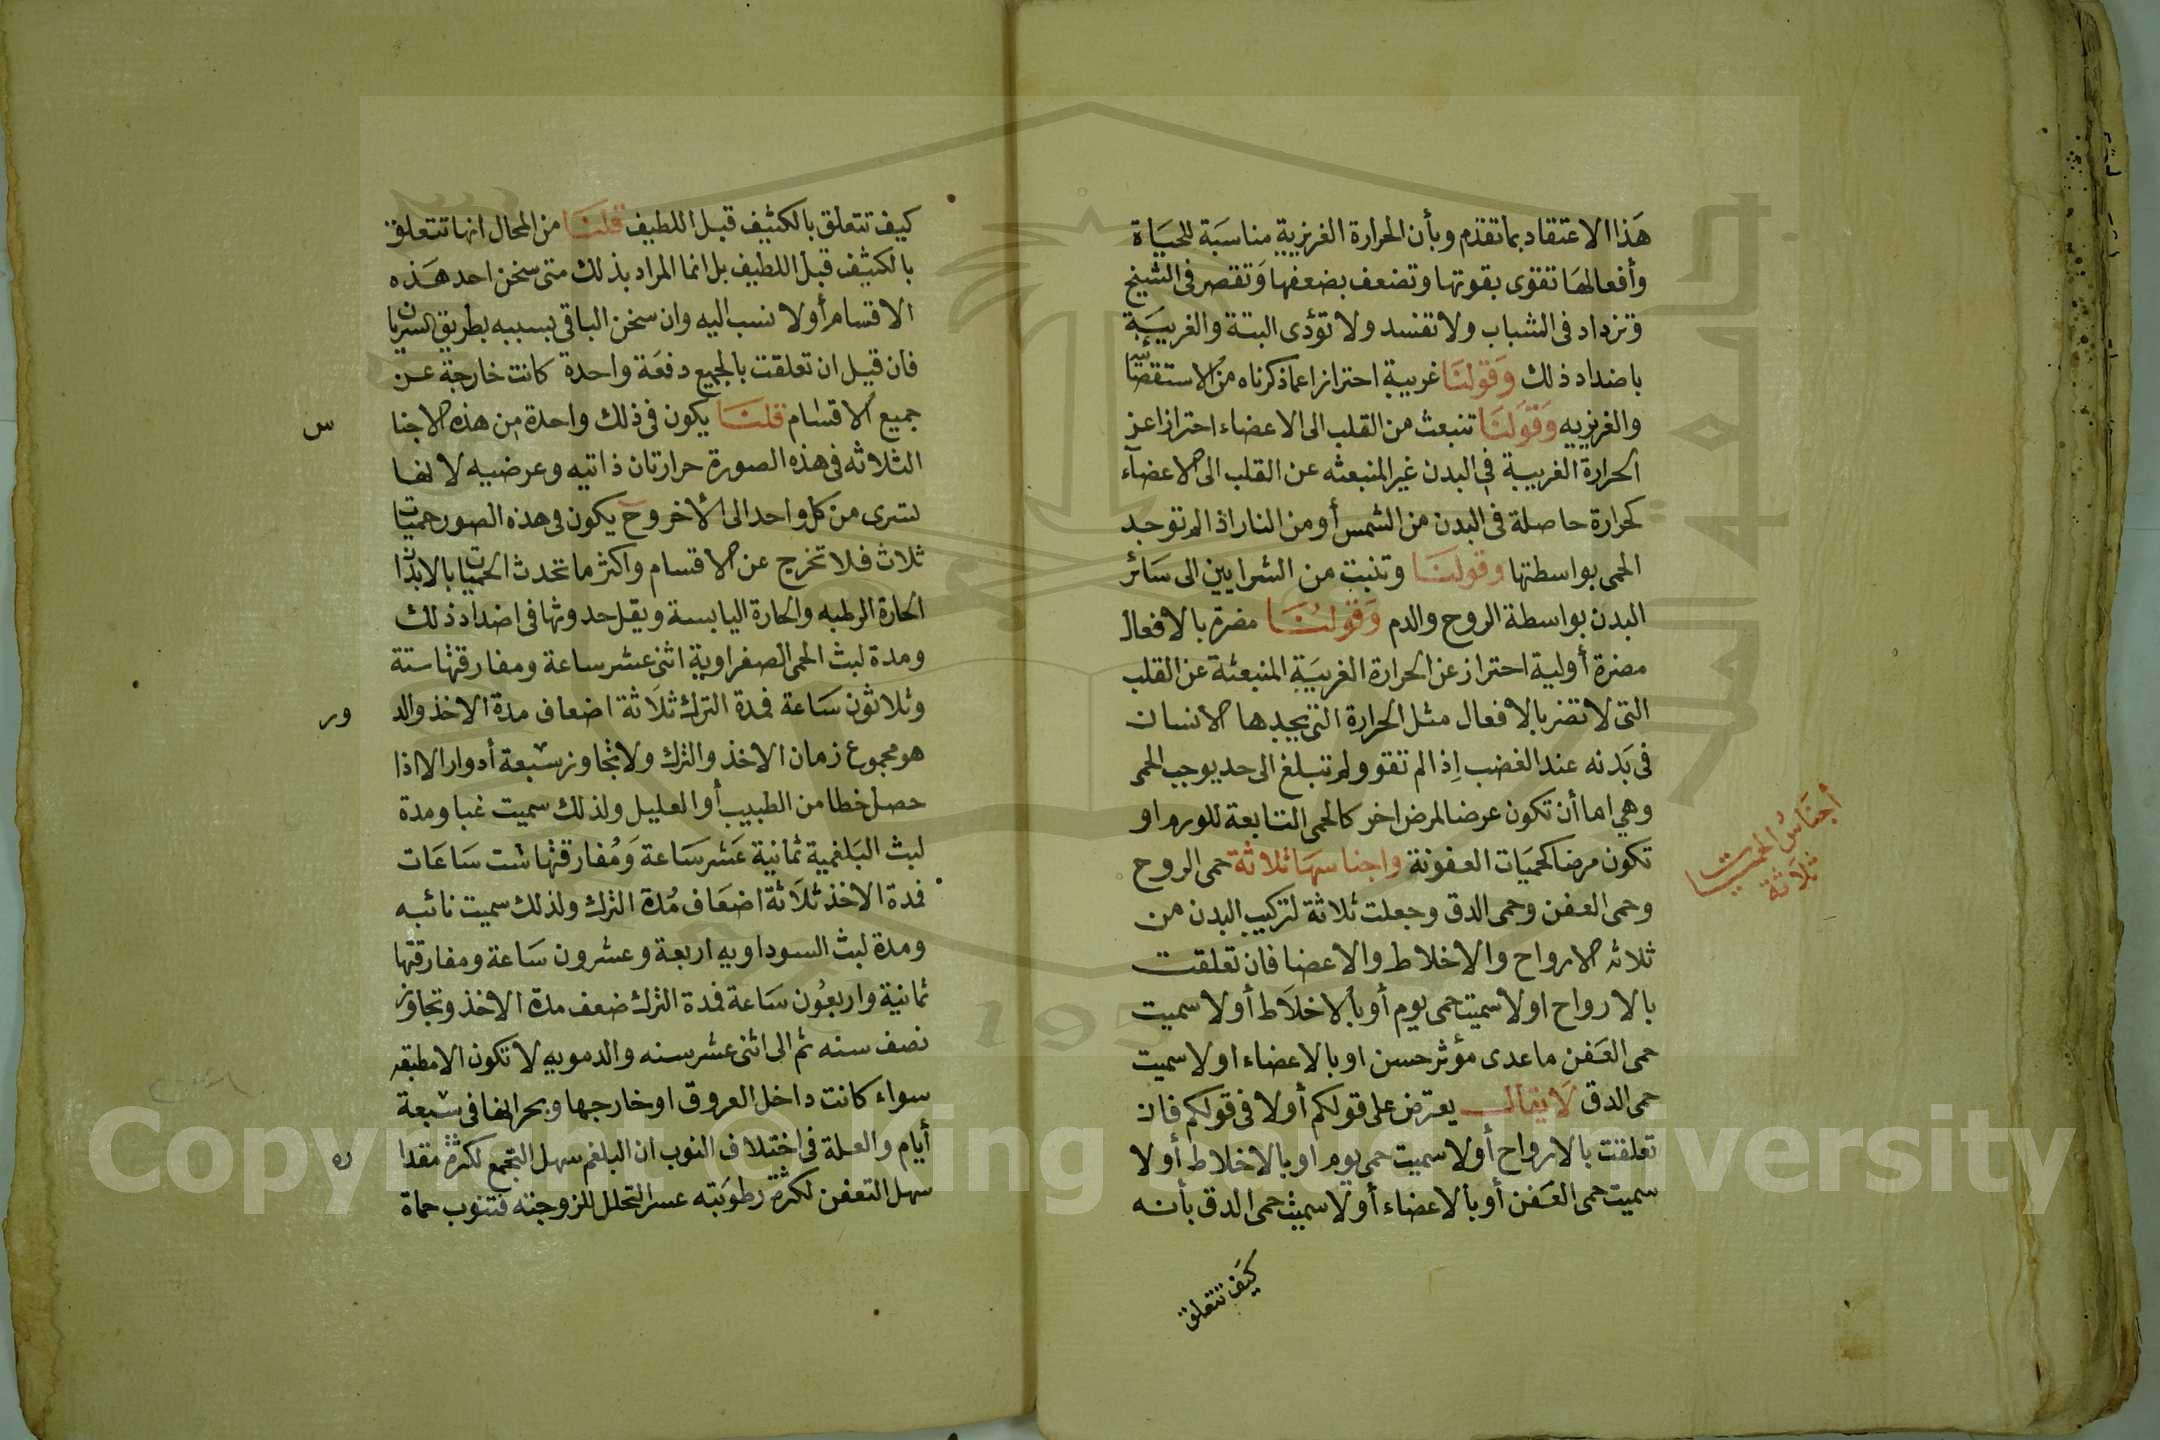 هَذا الاعتقاد بما تقدم وبأن الحرارة الغريزية مناسبَة للحيَاة
وأفعالهَا تقوى بقوتها وتضعف بضعفها وَتقصر فى الشيخ
وتزداد فى الشباب ولا تفسد ولا تؤدى البتة والغريبَة
باضداد ذلك وَقولنَا غريبة احترازا عما ذكرناه من الاستقصّا
والغريزيه وَقولنَا تنبعث من القلب الى الاعضاء احترازا عن
الحرارة الغريبة فى البدن غير المنبعثه عن القلب الى الاعضآء
كحرارة حاصلة فى البدن من الشمس أو من النار اذ الم توجد
الحمى بواسطتها وقولنَا وتنبت من الشرايين الى سَائر
البدن بواسطة الروح والدم وَقولنَا مضرة بالافعال
مضرة أولية احتراز عن الحرارة الغريبَة المنبعثة عن القلب
التى لا تضر بالافعال مثل الحرارة التى يجدها الانسان
فى بَدنه عند الغضب إذ الم تقو ولم تبلغ الى حد يوجب الحمى
وهي اما أن تكون عرضا لمرض اخر كالحمى التابعة للورم او
تكون مرضا كحميَات العفونة واجناسهَا ثلاثة حمى الروح
وحمى العفن وحمى الدق وجعلت ثلاثة لتركيب البدن من
ثلاثه الارواح والاخلاط والاعضا فان تعلقت
بالارواح اولا سميت حمى يوم أو بالاخلَاط أولا سميت
حمى العَفن ما عدى مؤثر حسن او بالاعضاء اولا سميت
حمى الدق لَا يقال يعترض على قولكم أولا فى قولكم فان
تعلقت بالارواح أولا سميت حمى يوم او بالاخلاط أولا
سميت حمى العَفن أو بالاعضاء أولا سميت حمى الدق بأنه
كيَف تتعلق
أجنَاسُ الحميات
ثلَاثة
كيف تتعلق بالكثيف قبل اللطيف قلنَا من المحال انها تتعلق
بالكثيف قبل اللطيف بل انما المراد بذلك متى سخن احد هَذه
الاقسام أولا نسب اليه وان سخن الباقى بسببه بطريق السريان
فان قيل ان تعلقت بالجميع دفعَة واحدة كانت خارجة عن
جميع الاقسَام قلنَا يكون فى ذلك واحدة من هذه الاجنا
س
الثلاثه فى هذه الصورة حرارتان ذاتيه وعرضيه لانها
تسرى من كل واحد الى الأخر وح يكون فى هذه الصور حميات
ثلاث فلا تخرج عن الاقسام واكثر ما تحدث الحميات بالابدان
الحارة الرطبه والحارة اليابسة ويقل حدوثها فى اضداد ذلك
ومدة لبث الحمى الصفراوية اثنى عشر ساعة ومفارقتها ستة
وثلاثون سَاعة فمدة الترك ثلَاثة اضعاف مدة الاخذ والد
ور
هو مجموع زمان الاخذ والترك ولا تجاوز سبعة أدوار الا اذا
حصل خطا من الطبيب أو العليل ولذلك سميت غبا ومدة
لبث البَلغمية ثمانية عَشر سَاعة وَمُفارقتها ست سَاعَات
فمدة الاخذ ثلَاثة اضعَاف مُدة الترك ولذلك سميت نائبه
ومدة لبث السوداويه اربعة وعشرون سَاعة ومفارقتها
ثمانية واربعُون سَاعة فمدة الترك ضعف مدة الاخذ وتجاوز
نصف سنه ثم الى اثنى عشر سنه والدمويه لا تكون الا مطبقه
سواء كانت داخل العروق او خارجها وبحرانها فى سَبعة
أيام والعلة فى اختلاف النوب ان البلغم سهل التجمع لكثرة مقدا
ره
سهل التعفن لكثرة رطوَبته عسر التحلل للزوجته فتنوب حماة
Copyright © King Saud University
195